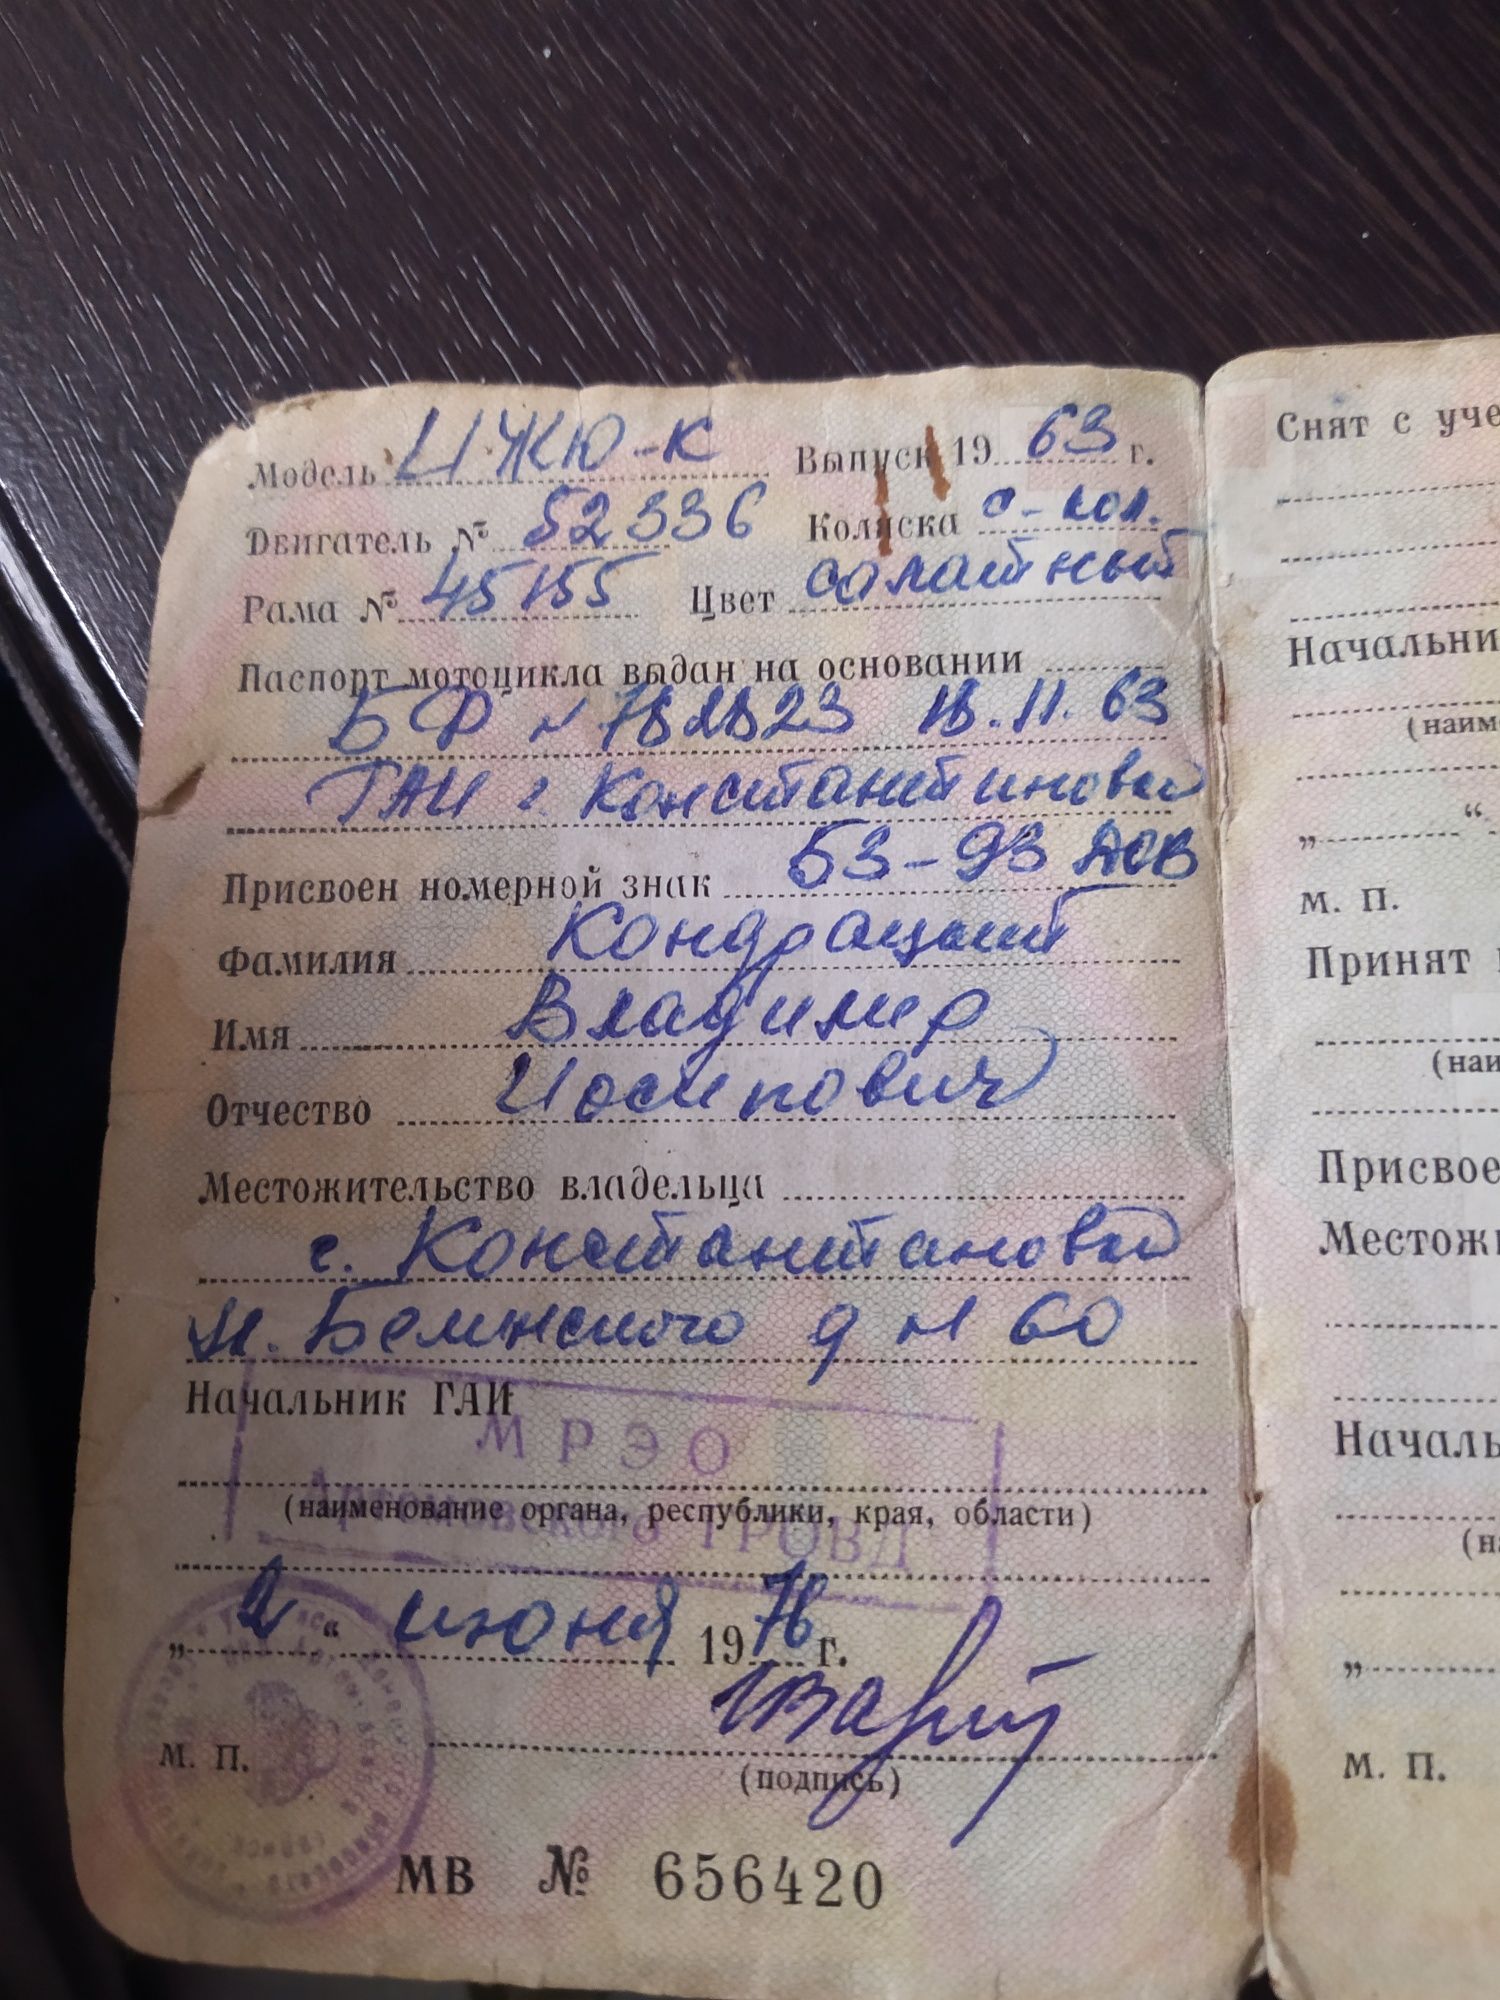 Модель ИЖЮ-К Выпуск 1963 г.
Двигатель № 52336 Коляска с-кол.
Рама № 45155 Цвет салатный
Паспорт мотоцикла выдан на основании
БФ № 782823 18.11.63
ГАИ г. Константиновка
Присвоен номерной знак 53-93 ДОВ
Фамилия Кондрацкий
Имя Владимир
Отчество Иосипович
Местожительство владельца
с. Константиновка
д № 60
Начальник ГАИ
МРЭО
Артемовского ГРОВД
(наименование органа, республики, края, области)
„2“ июня 1976 г.
М. П.
(подпись)
МВ № 656420
Снят с уче
Начальни
(наим
„ “
м. п.
Принят
(наи
Присвое
Местожи
Началь
(н
„
М. П.